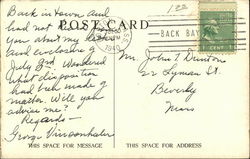 Back in town and
had not heard from
POST CARD
you about my letter
and enclosure of
July 3rd. Wondered
what disposition
had been made of
matter. Will you
advise me?
Regards —
George
1940
BACK BAY
1 CENT 1
Mr. John T.
22 Lyman St.
Beverly
Mass
THIS SPACE FOR MESSAGE
THIS SPACE FOR ADDRESS